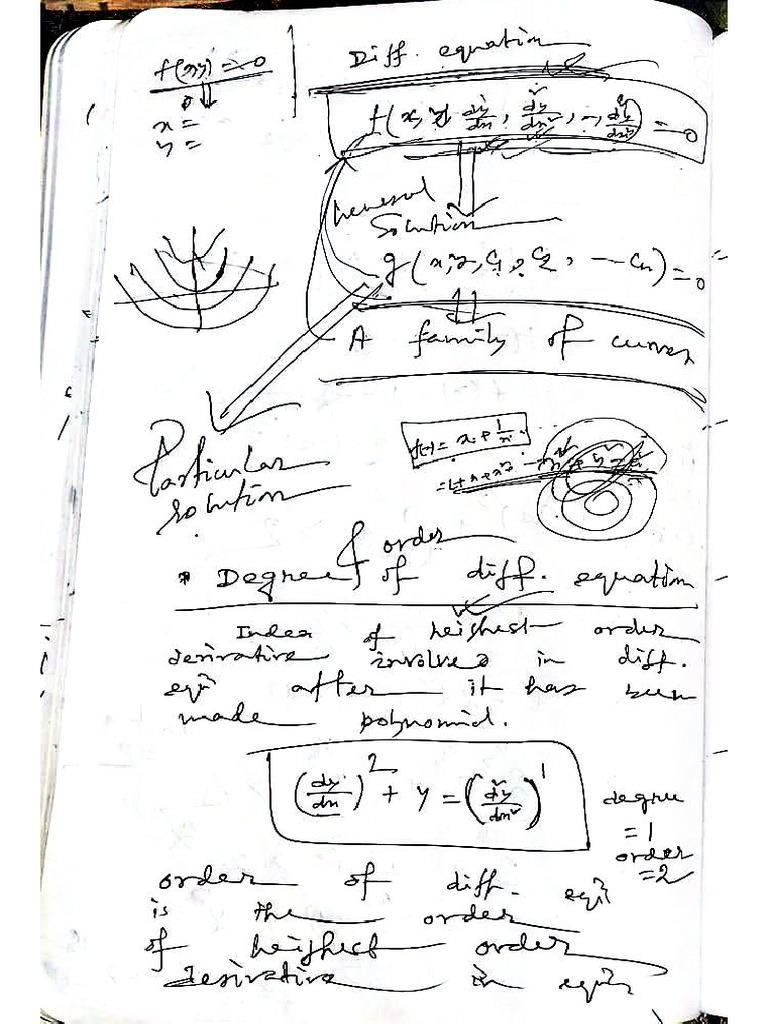 f(x,y) = 0
x =
y =
Diff. equation
f(x, y, dy/dx, d²y/dx², -, dⁿy/dxⁿ) = 0
General
Solution
g(x, y, c₁, c₂, --- cₙ) = 0
A family of curves
Particular
solution
f(x) = x +
& order
* Degree of diff. equation
Index of heighest order
derivative involved in diff.
eqⁿ after it has been
made polynomial.
(dy/dx)² + y = (d²y/dx²)¹
degree
= 1
order
= 2
order of diff. eqⁿ
is the order
of heighest order
derivative in eqⁿ